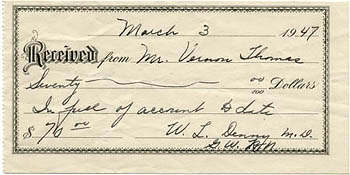 March 3 1947
Received from Mr. Vernon Thomas
Seventy 00/100 Dollars
In full of account to date
$ 70 00 W. L. Denny M.D.
G. W.